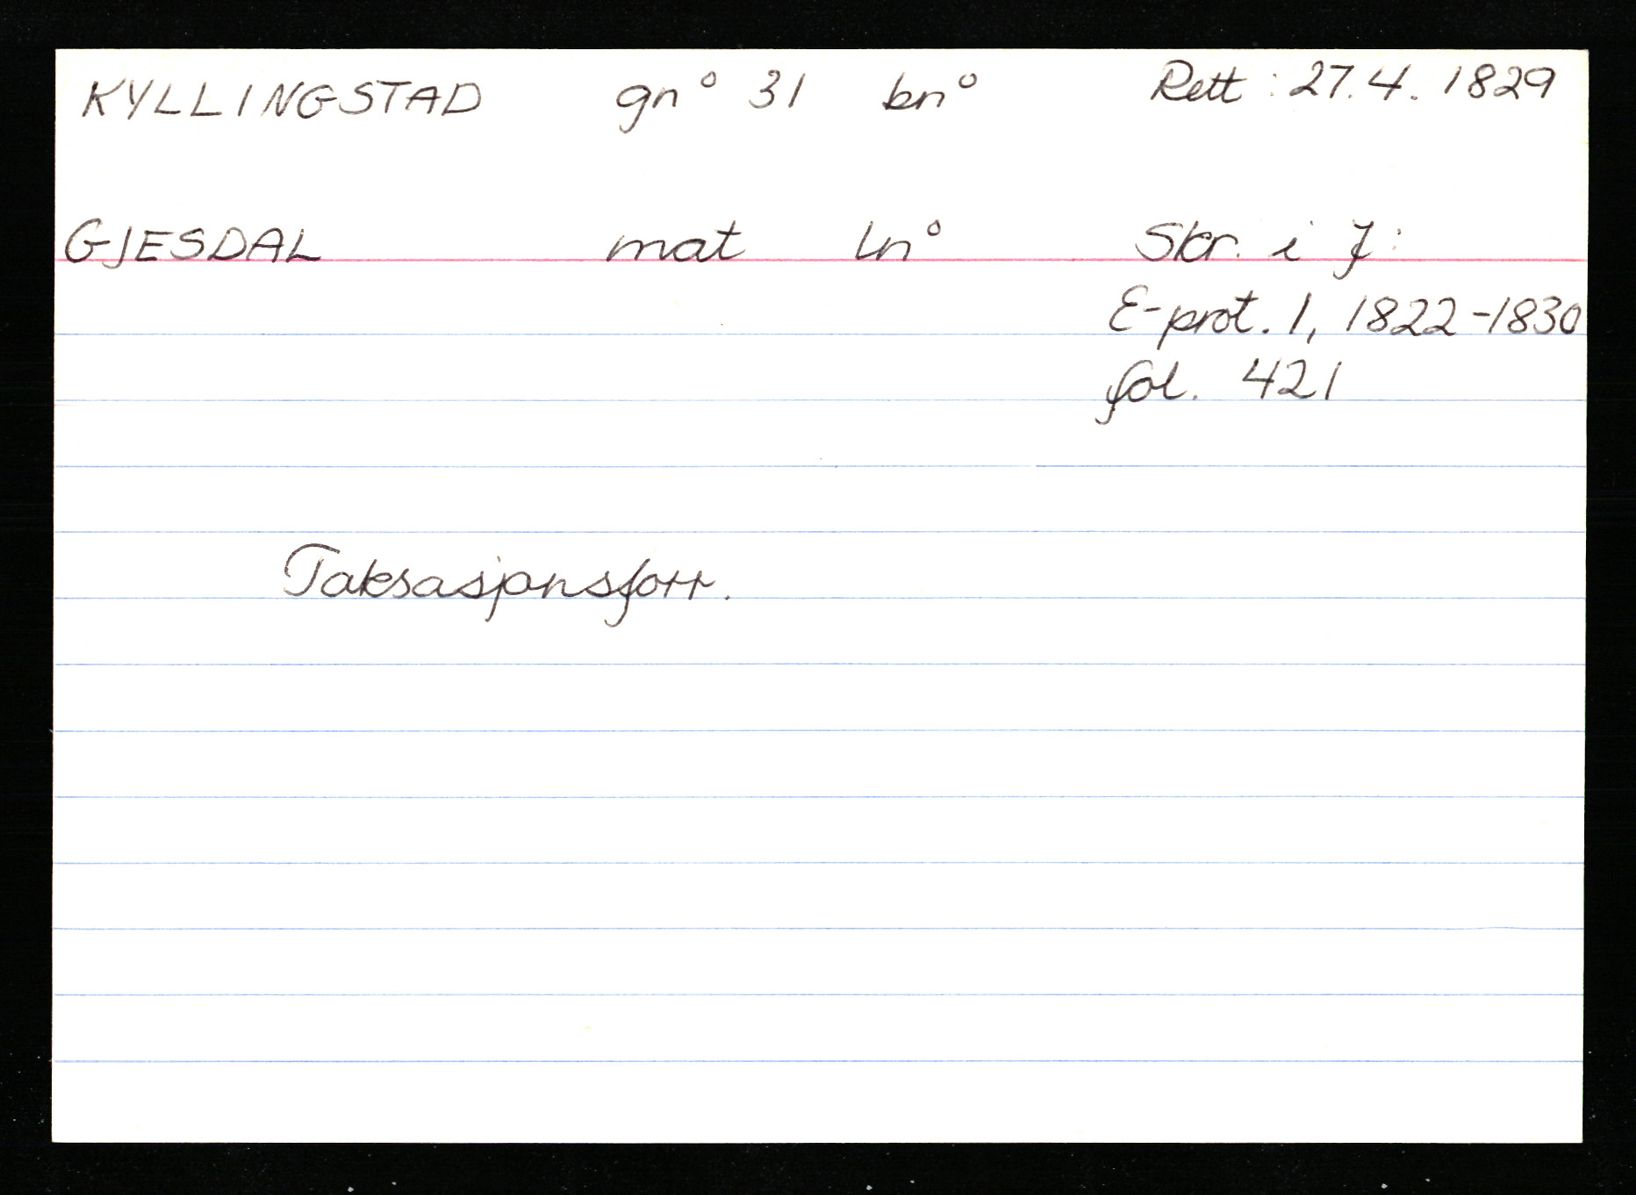 KYLLINGSTAD gn° 31 bn° Rett : 27.4. 1829
GJESDAL mat ln° Skr. i J:
E-prot. 1, 1822-1830
fol. 421
Taksasjonsforr.